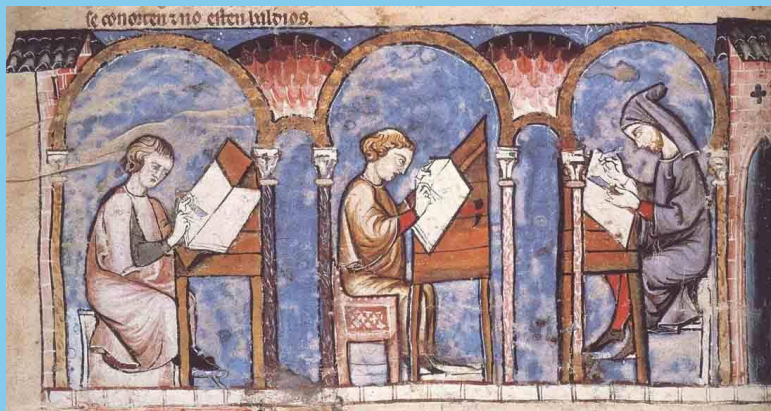 se conorten ⁊ no esten baldios.